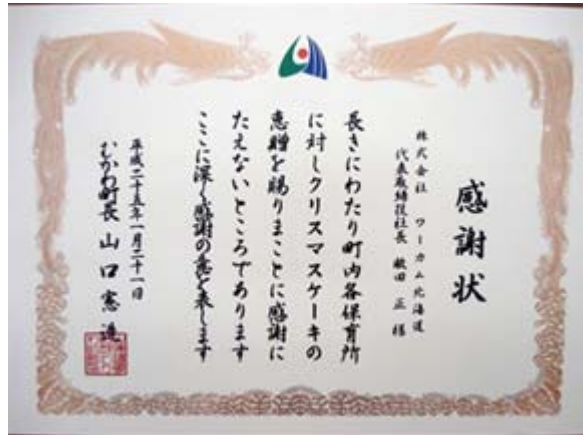 感謝状
株式会社 ワーカム北海道
代表取締役社長 梶田 正 様
長きにわたり町内各保育所
に対しクリスマスケーキの
恵贈を賜りまことに感謝に
たえないところであります
ここに深く感謝の意を表します
平成二十五年一月二十一日
むかわ町長 山口 憲造